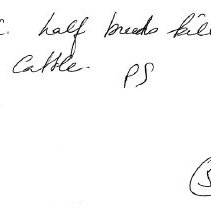 c. half breeds kill
Cattle. PS
5